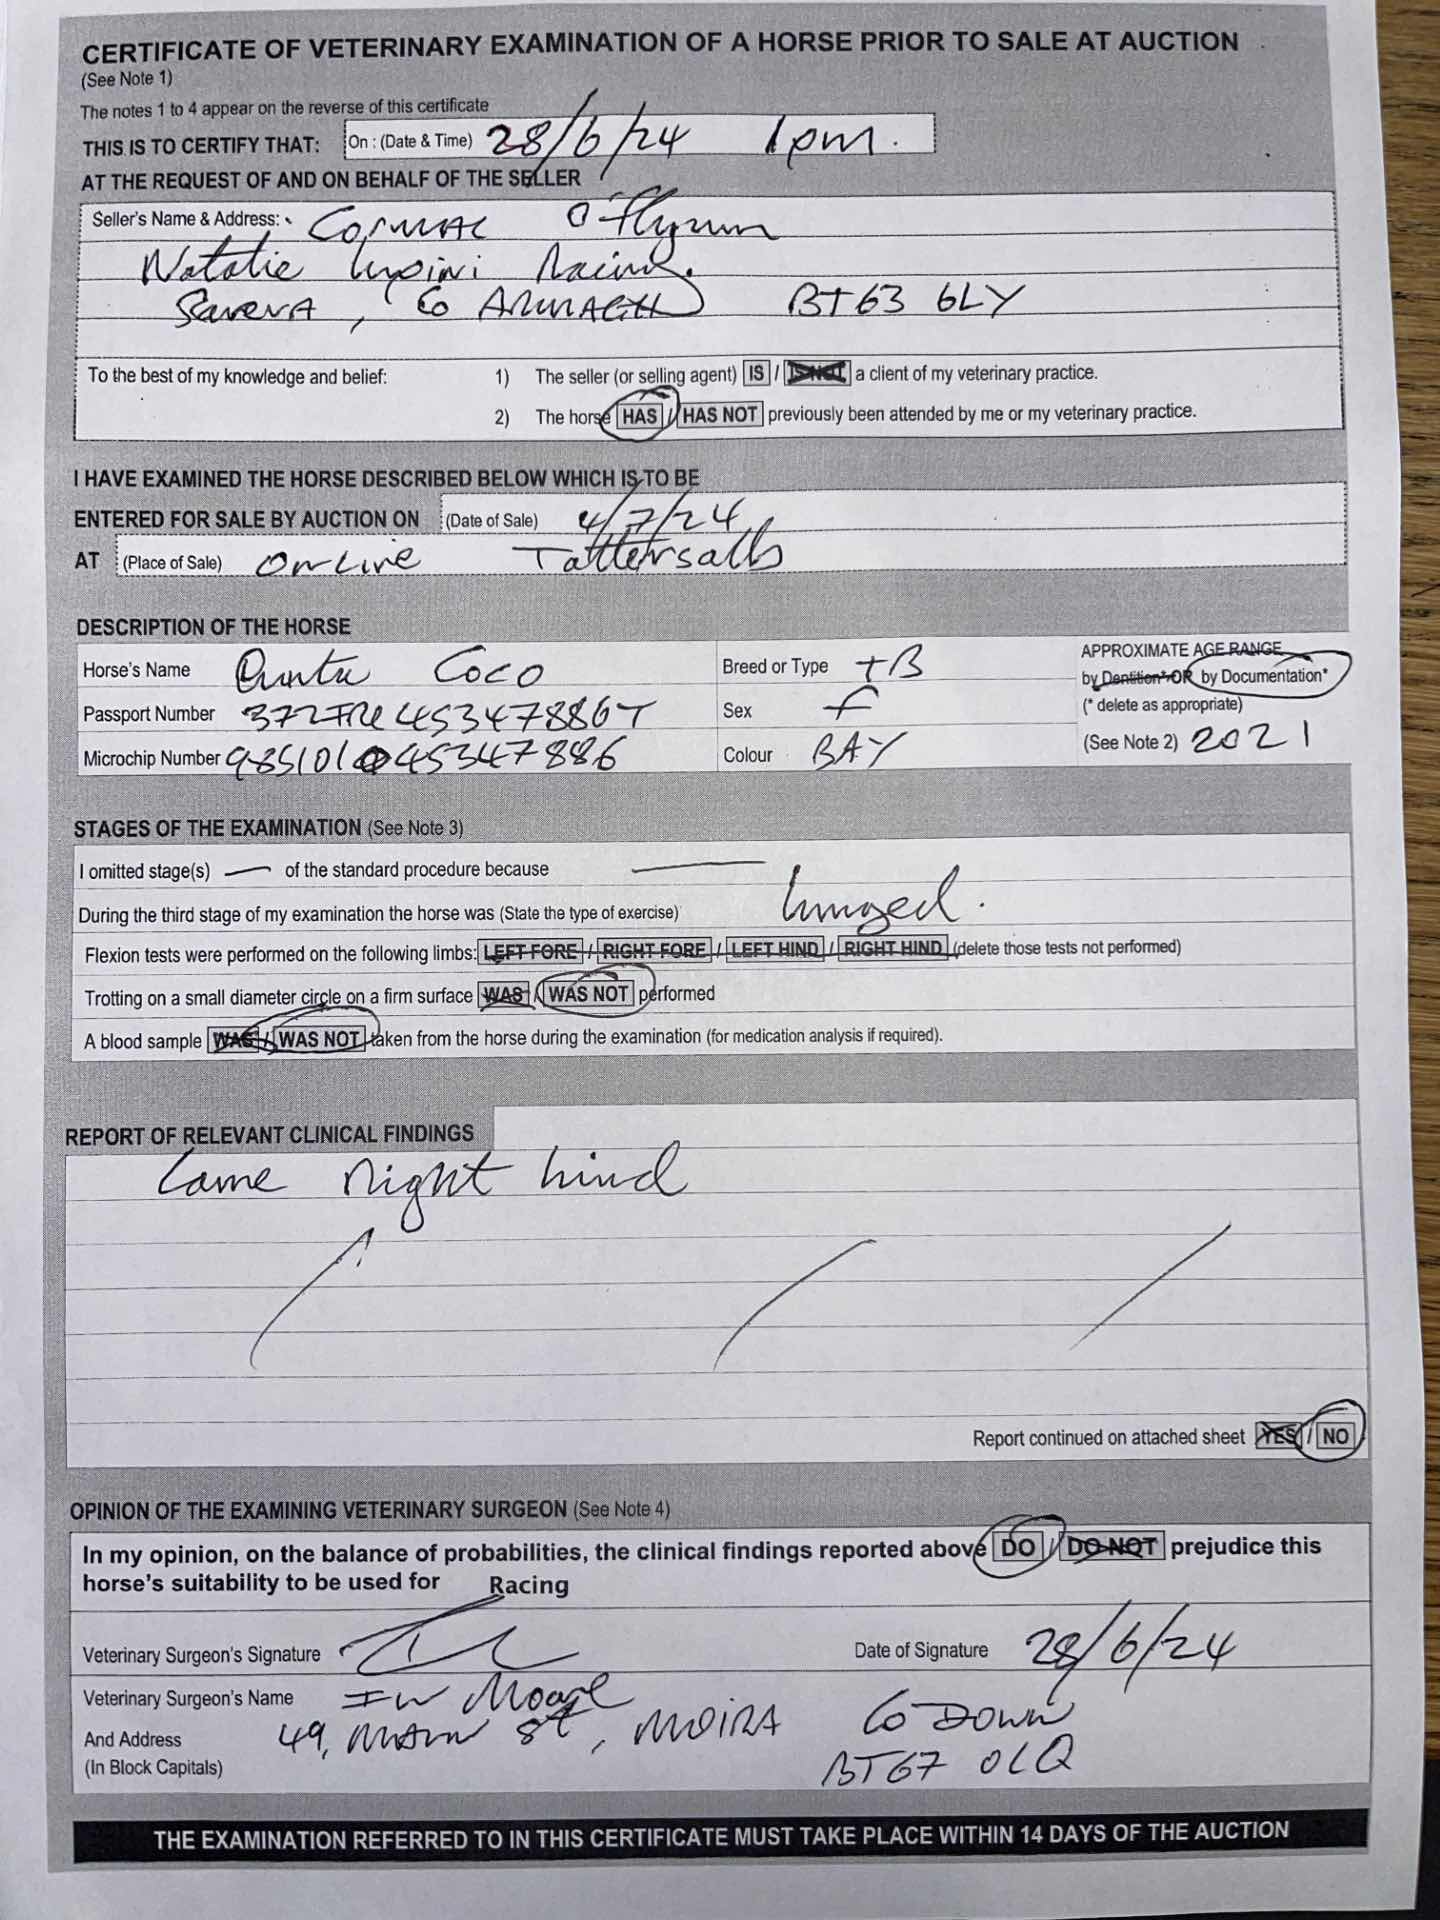 CERTIFICATE OF VETERINARY EXAMINATION OF A HORSE PRIOR TO SALE AT AUCTION
(See Note 1)
The notes 1 to 4 appear on the reverse of this certificate
THIS IS TO CERTIFY THAT: On : (Date & Time) 28/6/24 1pm.
AT THE REQUEST OF AND ON BEHALF OF THE SELLER
Seller's Name & Address: Cormac O'Flynn
Natalie Lupini Racing.
Scarva, Co ARMAGH BT63 6LY
To the best of my knowledge and belief: 1) The seller (or selling agent) IS / IS NOT a client of my veterinary practice.
2) The horse HAS / HAS NOT previously been attended by me or my veterinary practice.
I HAVE EXAMINED THE HORSE DESCRIBED BELOW WHICH IS TO BE
ENTERED FOR SALE BY AUCTION ON (Date of Sale) 4/7/24
AT (Place of Sale) OnLine Tattersalls
DESCRIPTION OF THE HORSE
Horse's Name Coco Breed or Type TB
APPROXIMATE AGE RANGE
by Dentition* OR by Documentation*
Passport Number Sex F
(* delete as appropriate)
Microchip Number 985101045347886 Colour BAY
(See Note 2) 2021
STAGES OF THE EXAMINATION (See Note 3)
I omitted stage(s) — of the standard procedure because —
During the third stage of my examination the horse was (State the type of exercise) lunged.
Flexion tests were performed on the following limbs: LEFT FORE / RIGHT FORE / LEFT HIND / RIGHT HIND (delete those tests not performed)
Trotting on a small diameter circle on a firm surface WAS / WAS NOT performed
A blood sample WAS / WAS NOT taken from the horse during the examination (for medication analysis if required).
REPORT OF RELEVANT CLINICAL FINDINGS
Lame right hind
Report continued on attached sheet YES / NO
OPINION OF THE EXAMINING VETERINARY SURGEON (See Note 4)
In my opinion, on the balance of probabilities, the clinical findings reported above DO / DO NOT prejudice this
horse's suitability to be used for Racing
Veterinary Surgeon's Signature Date of Signature 28/6/24
Veterinary Surgeon's Name
And Address 49, MAIN St, MOIRA Co DOWN
(In Block Capitals) BT67 0LQ
THE EXAMINATION REFERRED TO IN THIS CERTIFICATE MUST TAKE PLACE WITHIN 14 DAYS OF THE AUCTION